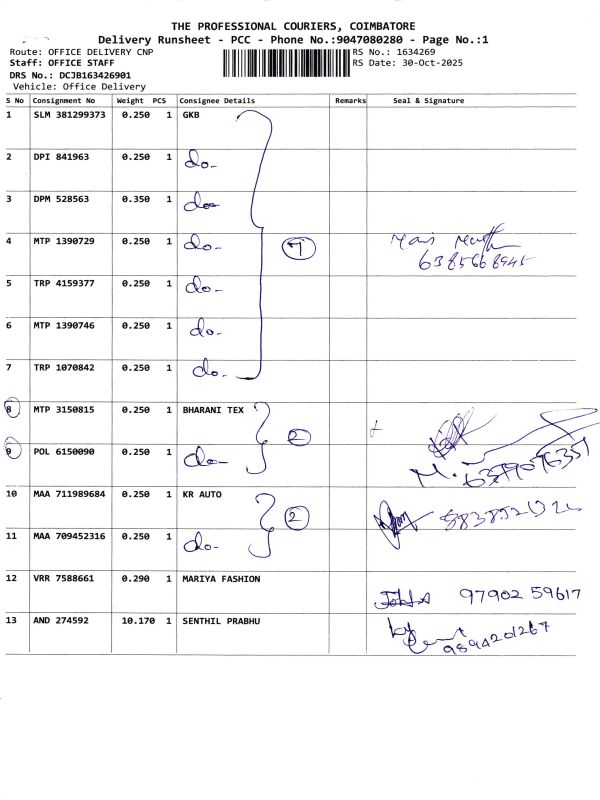 THE PROFESSIONAL COURIERS, COIMBATORE
Delivery Runsheet - PCC - Phone No.:9047080280 - Page No.:1
Route: OFFICE DELIVERY CNP RS No.: 1634269
Staff: OFFICE STAFF RS Date: 30-Oct-2025
DRS No.: DCJB163426901
Vehicle: Office Delivery
S No Consignment No Weight PCS Consignee Details Remarks Seal & Signature
1 SLM 381299373 0.250 1 GKB
2 DPI 841963 0.250 1 do-
3 DPM 528563 0.350 1 do-
4 MTP 1390729 0.250 1 do- 7
6385668945
5 TRP 4159377 0.250 1 do-
6 MTP 1390746 0.250 1 do-
7 TRP 1070842 0.250 1 do-
8 MTP 3150815 0.250 1 BHARANI TEX 2
9 POL 6150090 0.250 1 do- M.
10 MAA 711989684 0.250 1 KR AUTO 2
11 MAA 709452316 0.250 1 do-
12 VRR 7588661 0.290 1 MARIYA FASHION 97902 59617
13 AND 274592 10.170 1 SENTHIL PRABHU 9894201267